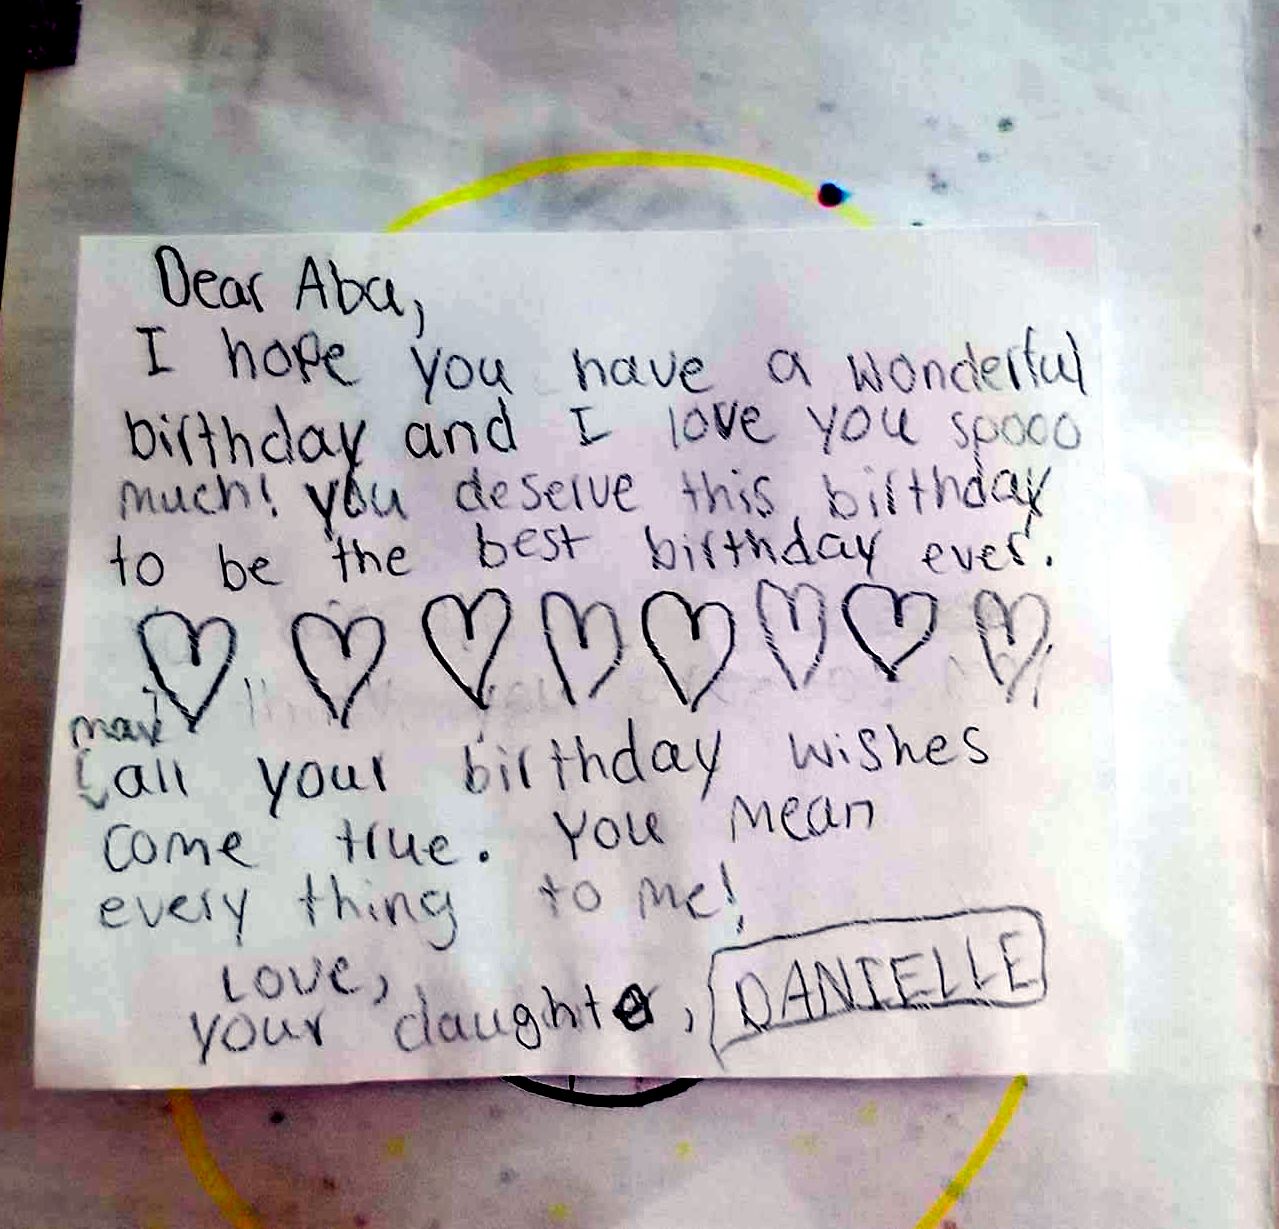 Dear Aba,
I hope you have a wonderful
birthday and I love you soooo
much! you deserve this birthday
to be the best birthday ever.
may
all your birthday wishes
come true. You mean
every thing to me!
Love,
your daughter, DANIELLE